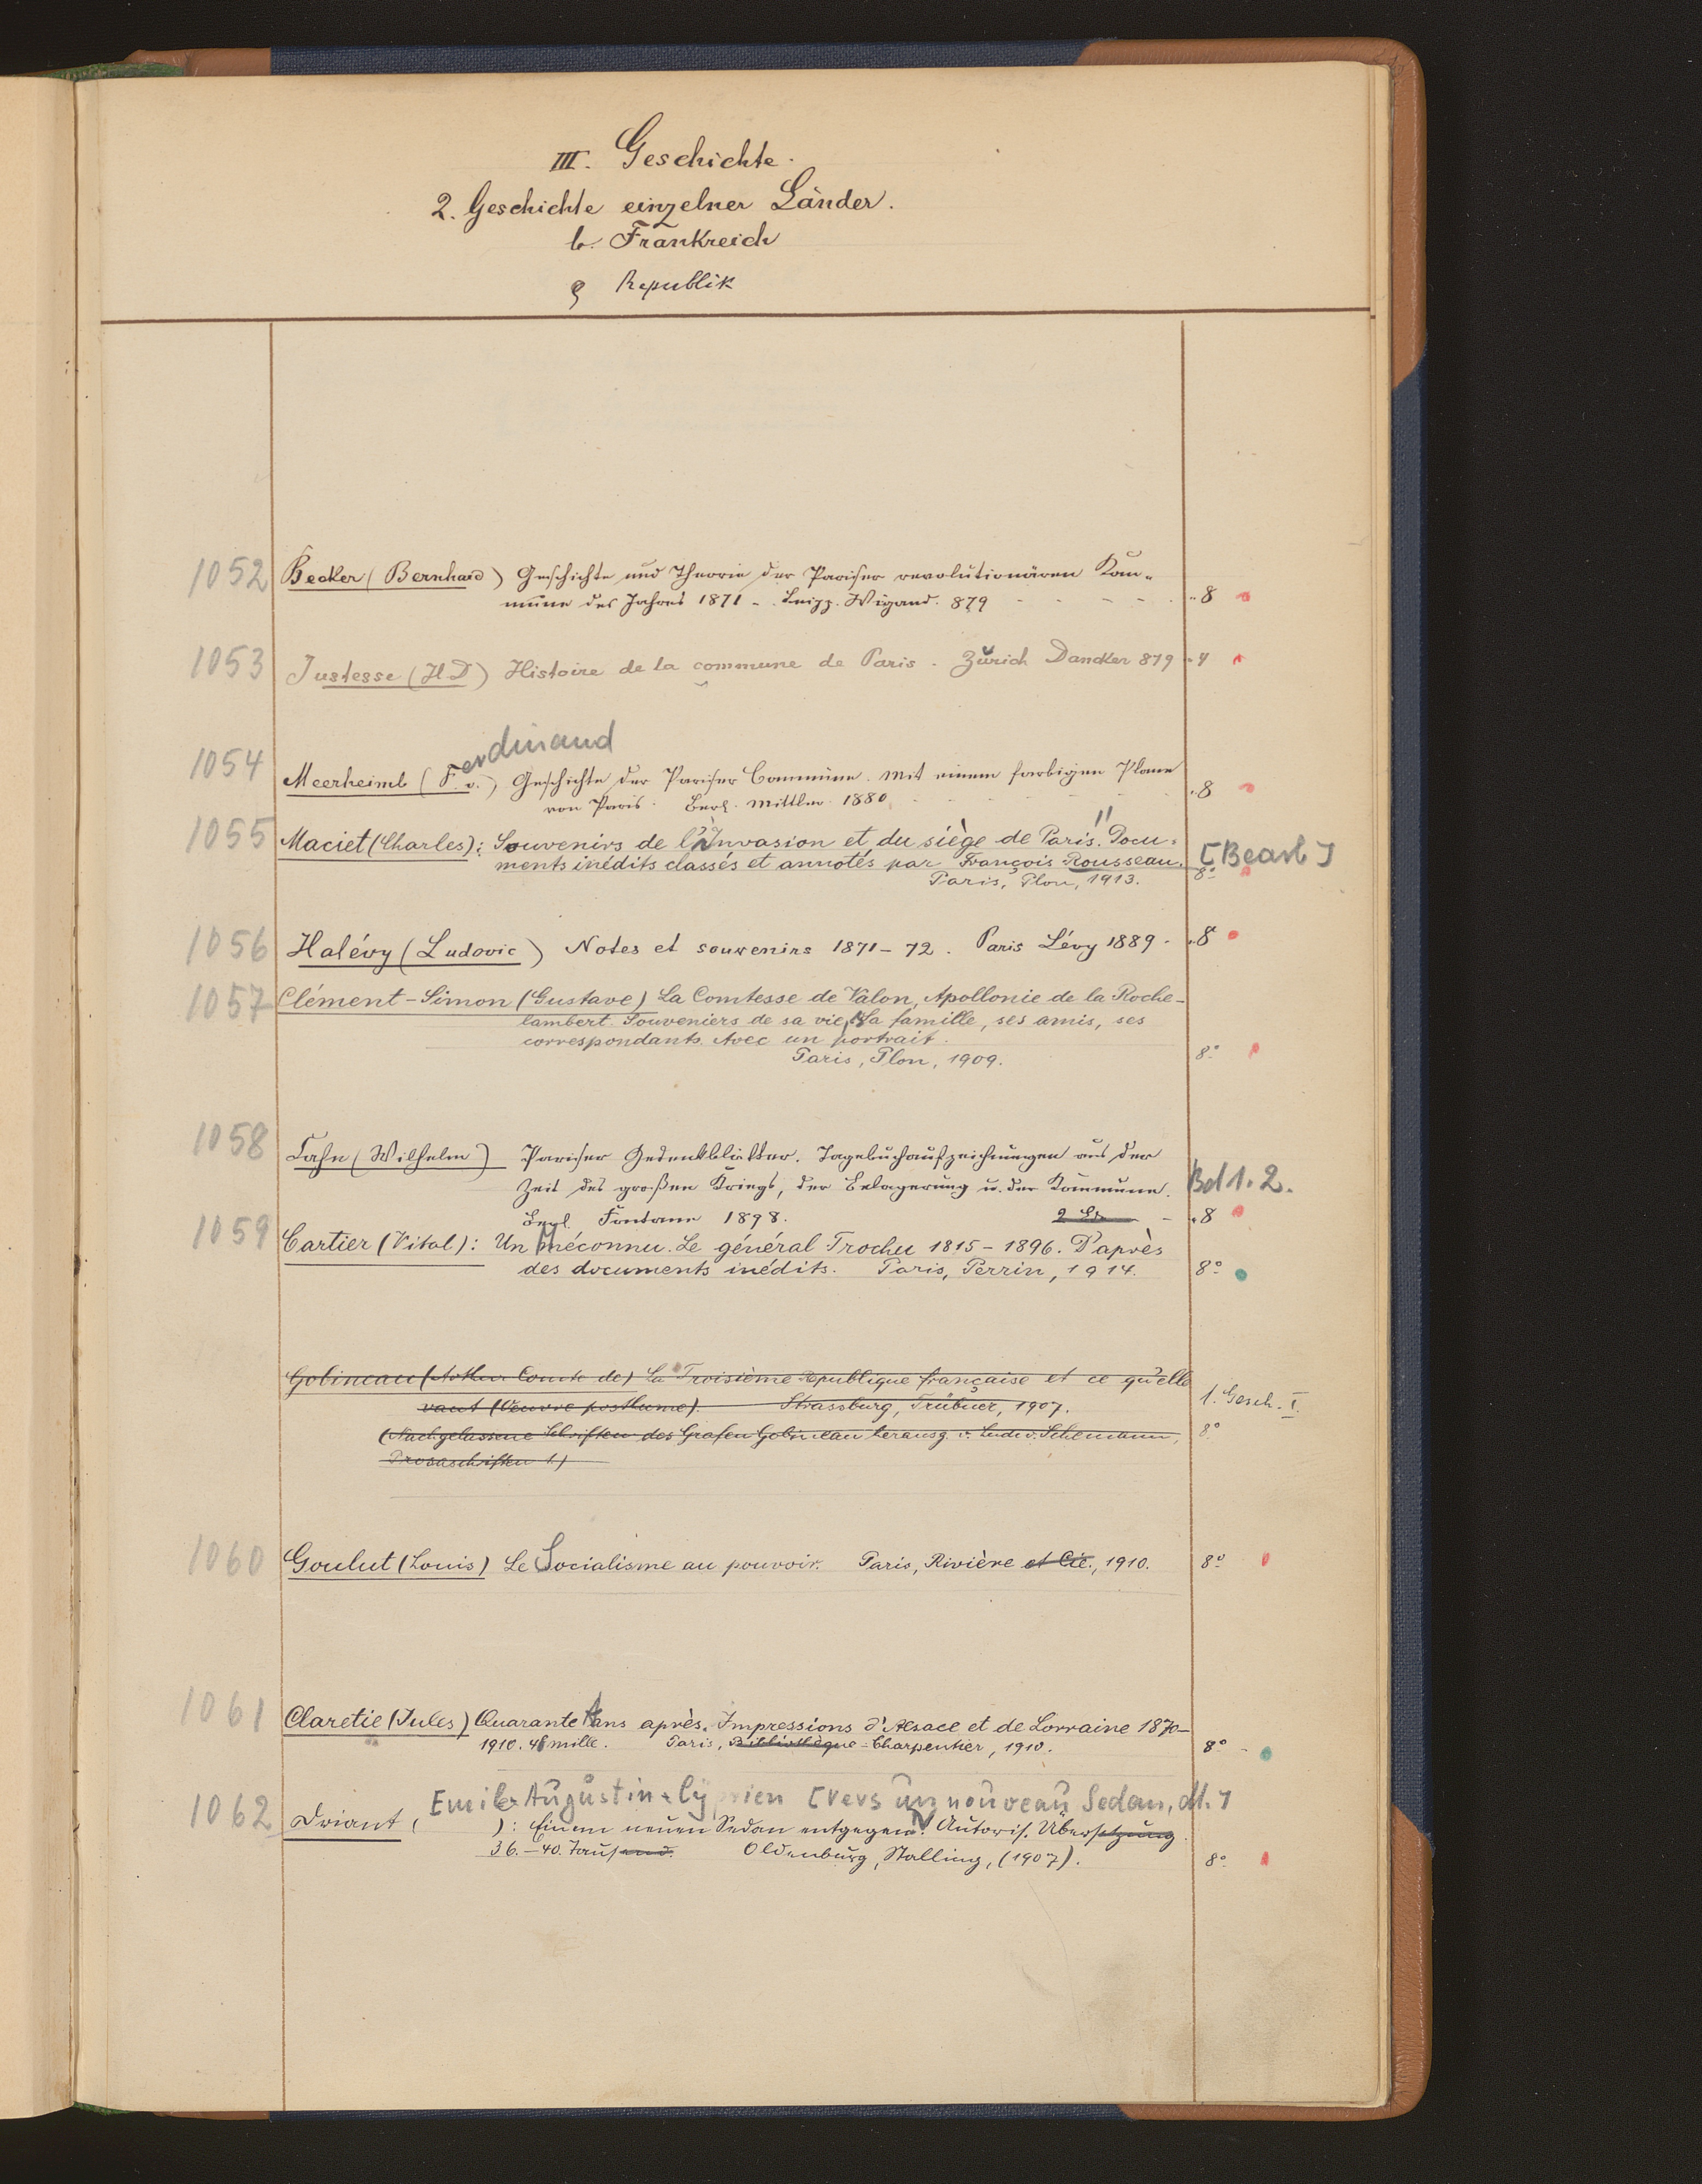 III. Geschichte.
2. Geschichte einzelner Länder.
b. Frankreich
Republik
1052 Becker (Bernhard) Geschichte und Theorie der Pariser revolutionären Kom-
mune des Jahres 1871 - Leipz. Wigand. 879 8
1053 Justesse (H.D) Histoire de la commune de Paris. Zürich Dancker 879 4
erdinand
1054 Meerheimb (F. v.) Geschichte der Pariser Commune. Mit einem farbigen Plane
von Paris. Berl. Mittler. 1880 8
1055 Maciet (Charles): Souvenirs de l'Invasion et du siège de Paris. Docu-
ments inédits classés et annotés par François Rousseau. [Bearb]
Paris, Plon, 1913. 8°
1056 Halévy (Ludovic) Notes et souvenirs 1871-72. Paris Lévy 1889. 8
1057 Clément-Simon (Gustave) La Comtesse de Valon, Apollonie de la Roche-
lambert. Souveniers de sa vie, sa famille, ses amis, ses
correspondants. Avec un portrait.
Paris, Plon, 1909. 8°
1058 Cahn (Wilhelm) Pariser Gedenkblätter. Tagebuchaufzeichnungen aus der
Zeit des großen Kriegs, der Belagerung u. der Kommune. Bd 1. 2.
Berl. Fontane 1898. 2 8
1059 Cartier (Vital): Un Méconnu. Le général Trochu 1815-1896. D'après
des documents inédits. Paris, Perrin, 1914. 8°
Gobineau (Arthur Comte de) La Troisième Republique française et ce qu'elle
vaut (Oeuvre posthume). Strassburg, Trübner, 1907. 1. Gesch. I.
(Nachgelassene Schriften des Grafen Gobineau herausg. v. Ludw. Schemann, 8°
Prosaschriften 1.)
1060 Goulut (Louis) Le Socialisme au pouvoir. Paris, Rivière et Cie., 1910. 8°
1061 Claretie (Jules) Quarante Ans après. Impressions d'Alsace et de Lorraine 1870-
1910. 4e mille. Paris, Bibliothèque-Charpentier, 1910. 8°
Emile Augustin Cyprien [Vers un nouveau Sedan, dt.]
1062 Driant, ( ): Einem neuen Sedan entgegen! Autoris. Übersetzung.
36.-40. Tausend. Oldenburg, Stalling, (1907). 8°